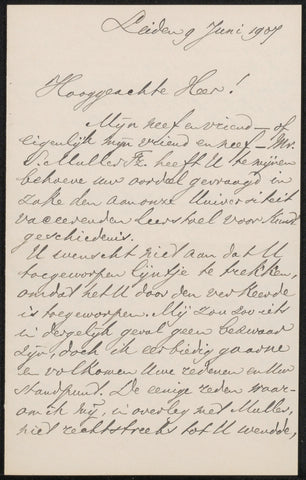 Leiden 9 Juni 1907
Hooggeachte Heer!
Mijn neef en vriend – of
eigenlijk mijn vriend en neef – Mr.
S. Muller Fz. heeft U te mijnen
behoeve uw oordeel gevraagd in
zake den aan onze Universiteit
vaceerenden leerstoel voor Kunst
geschiedenis.
U wenscht niet aan dat U
toegeworpen lijntje te trekken,
omdat het U door den verkeerde
is toegeworpen. Mij zou zoo iets
in dergelijk geval geen bezwaar
zijn, doch ik eerbiedig gaarne
en volkomen Uwe redenen en Uw
standpunt. De eenige reden waar-
om ik mij, in overleg met Muller,
niet rechtstreeks tot U wendde,